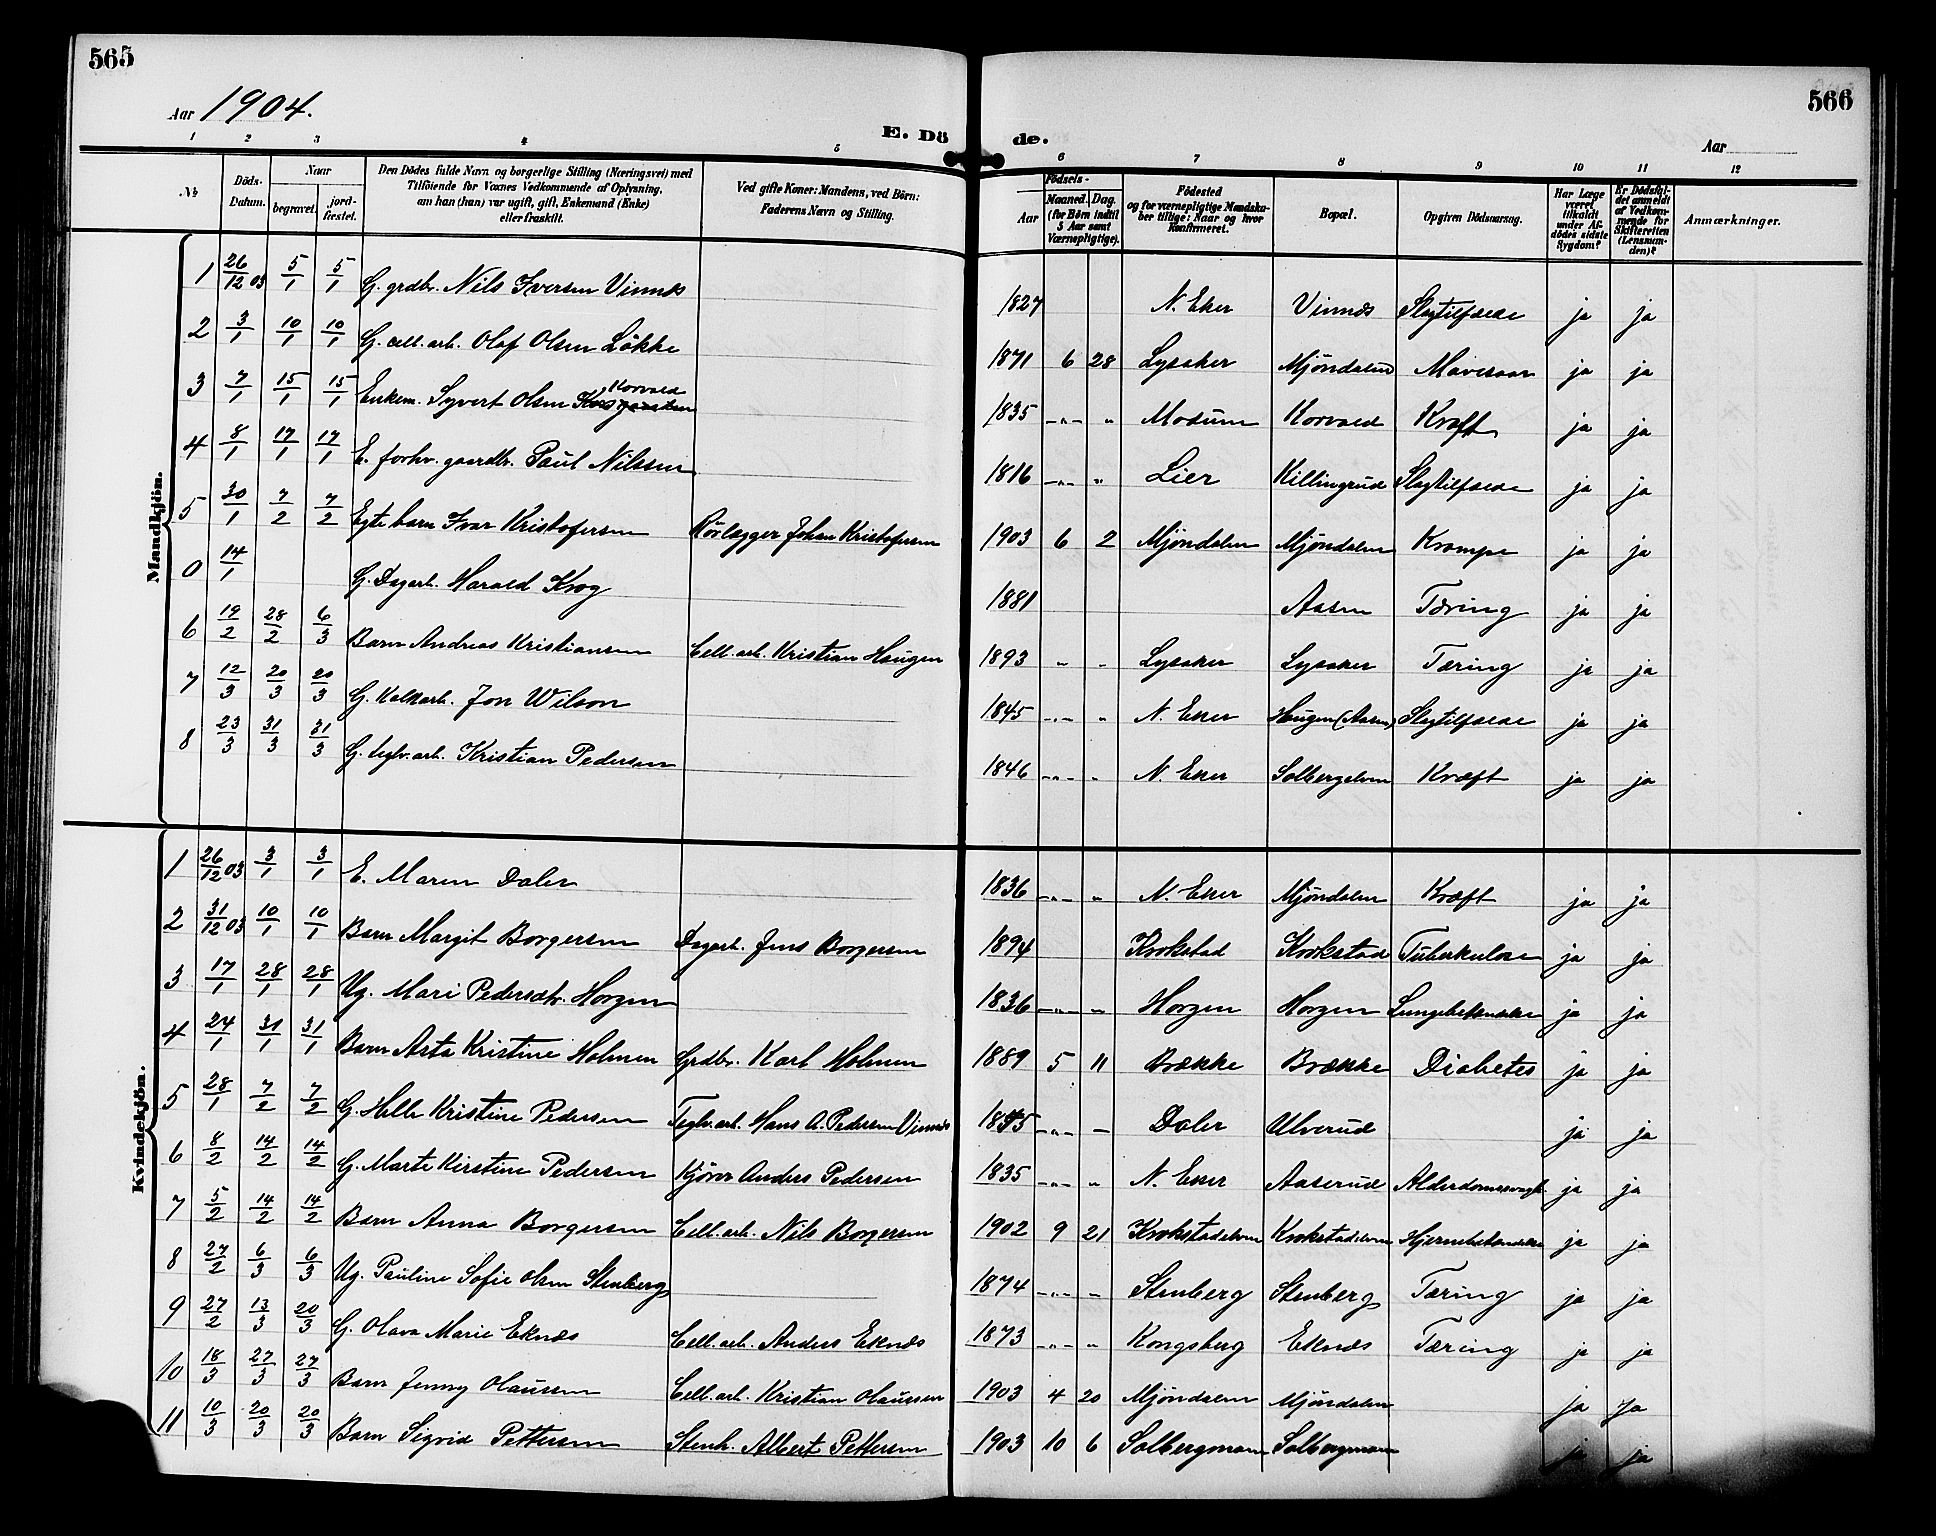 565
566
Aar 1904.
E. Dö de.
Aar
1 2 3 4 5 6 7 8 9 10 11 12
№ Döds-Datum. Naar begravet. jordfæstet. Den Dödes fulde Navn og borgerlige Stilling (Næringsvei) med Tilföiende for Voxnes Vedkommende af Oplysning, om han (hun) var ugift, gift, Enkemand (Enke) eller fraskilt. Ved gifte Koner: Mandens, ved Börn: Faderens Navn og Stilling. Födsels- Aar Maaned. Dag. (for Börn indtil 3 Aar samt Værnepligtige). Födested og for værnepligtige Mandskaber tillige: Naar og hvor Konfirmeret. Bopæl. Opgiven Dödsaarsag. Har Læge været tilkaldt under Afdödes sidste Sygdom? Er Dödsfaldet anmeldt af Vedkommende for Skifteretten (Lensmanden)? Anmærkninger.
Mandkjön.
1 26/12 03 5/1 5/1 G. grdbr. Nils Iversen Vinnæs 1827 N. Eker Vinnæs Slagtilfælde ja ja
2 3/1 10/1 10/1 G. cell. arb. Olaf Olsen Løkke 1871 6 28 Lysaker Mjøndalen Mavesaar ja ja
3 7/1 15/1 15/1 Enkem. Syvert Olsen Korvald 1835 -„- „ Modum Korvald Kræft ja ja
4 8/1 17/1 17/1 E. forhv. gaardbr. Paul Nilssen 1816 -„- „ Lier Killingrud Slagtilfælde ja ja
5 30/1 7/2 7/2 Egte barn Ivar Kristofersen Rørlægger Johan Kristofersen 1903 6 2 Mjøndalen Mjøndalen Krampe ja ja
0 14/1 G. Dagarb. Harald Krog 1881 Aasen Tæring ja ja
6 19/2 28/2 6/3 Barn Andreas Kristiansen Cell. arb. Kristian Haugen 1893 „ „ Lysaker Lysaker Tæring ja ja
7 12/3 20/3 20/3 G. Kalkarb. Jon Wilson 1845 -„- „ N. Eker Haugen (Aasen) Slagtilfælde ja ja
8 23/3 31/3 31/3 G. teglv. arb. Kristian Pedersen 1846 -„- „ N. Eker Solbergelven Kræft ja ja
Kvindekjön.
1 26/12 03 3/1 3/1 E. Maren Daler 1836 -„- „ N. Eker Mjøndalen Kræft ja ja
2 31/12 03 10/1 10/1 Barn Margit Borgersen Dagarb. Jens Borgersen 1894 Krokstad Krokstad Tuberkulose ja ja
3 17/1 28/1 28/1 Ug. Mari Pedersdtr. Horgen 1836 -„- „ Horgen Horgen Lungebetændelse ja ja
4 24/1 31/1 31/1 Barn Asta Kristine Holmen Grdbr. Karl Holmen 1889 5 11 Brække Brække Diabetes ja ja
5 28/1 7/2 7/2 G. Helle Kristine Pedersen Teglv. arb. Hans A. Pedersen Vinnæs -„- — Daler Ulverud ja ja
6 8/2 14/2 14/2 G. Marte Kirstine Pedersen Kjører Anders Pedersen 1835 -„- „ N. Eker Aaserud Alderdomssvagh. ja ja
7 5/2 14/2 14/2 Barn Anna Borgersen Cell. arb. Nils Borgersen 1902 9 21 Krokstadelven Krokstadelven Hjernebetændelse ja ja
8 27/2 6/3 6/3 Ug. Pauline Sofie Olsen Stenberg 1874 -„- „ Stenberg Stenberg Tæring ja ja
9 27/2 13/3 20/3 G. Olava Marie Eknæs Cell. arb. Anders Eknæs 1873 -„- „ Kongsberg Eknæs Tæring ja ja
10 18/3 27/3 27/3 Barn Jenny Olaussen Cell. arb. Kristian Olaussen 1903 4 20 Mjøndalen Mjøndalen ja ja
11 10/3 20/3 20/3 Barn Sigrid Pettersen Stenh. Albert Pettersen 1903 10 6 Solbergmoen Solbergmoen ja ja